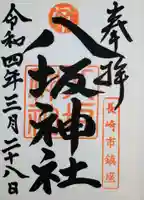 奉拝
長崎市鎮座
八坂神社
令和四年三月二十八日